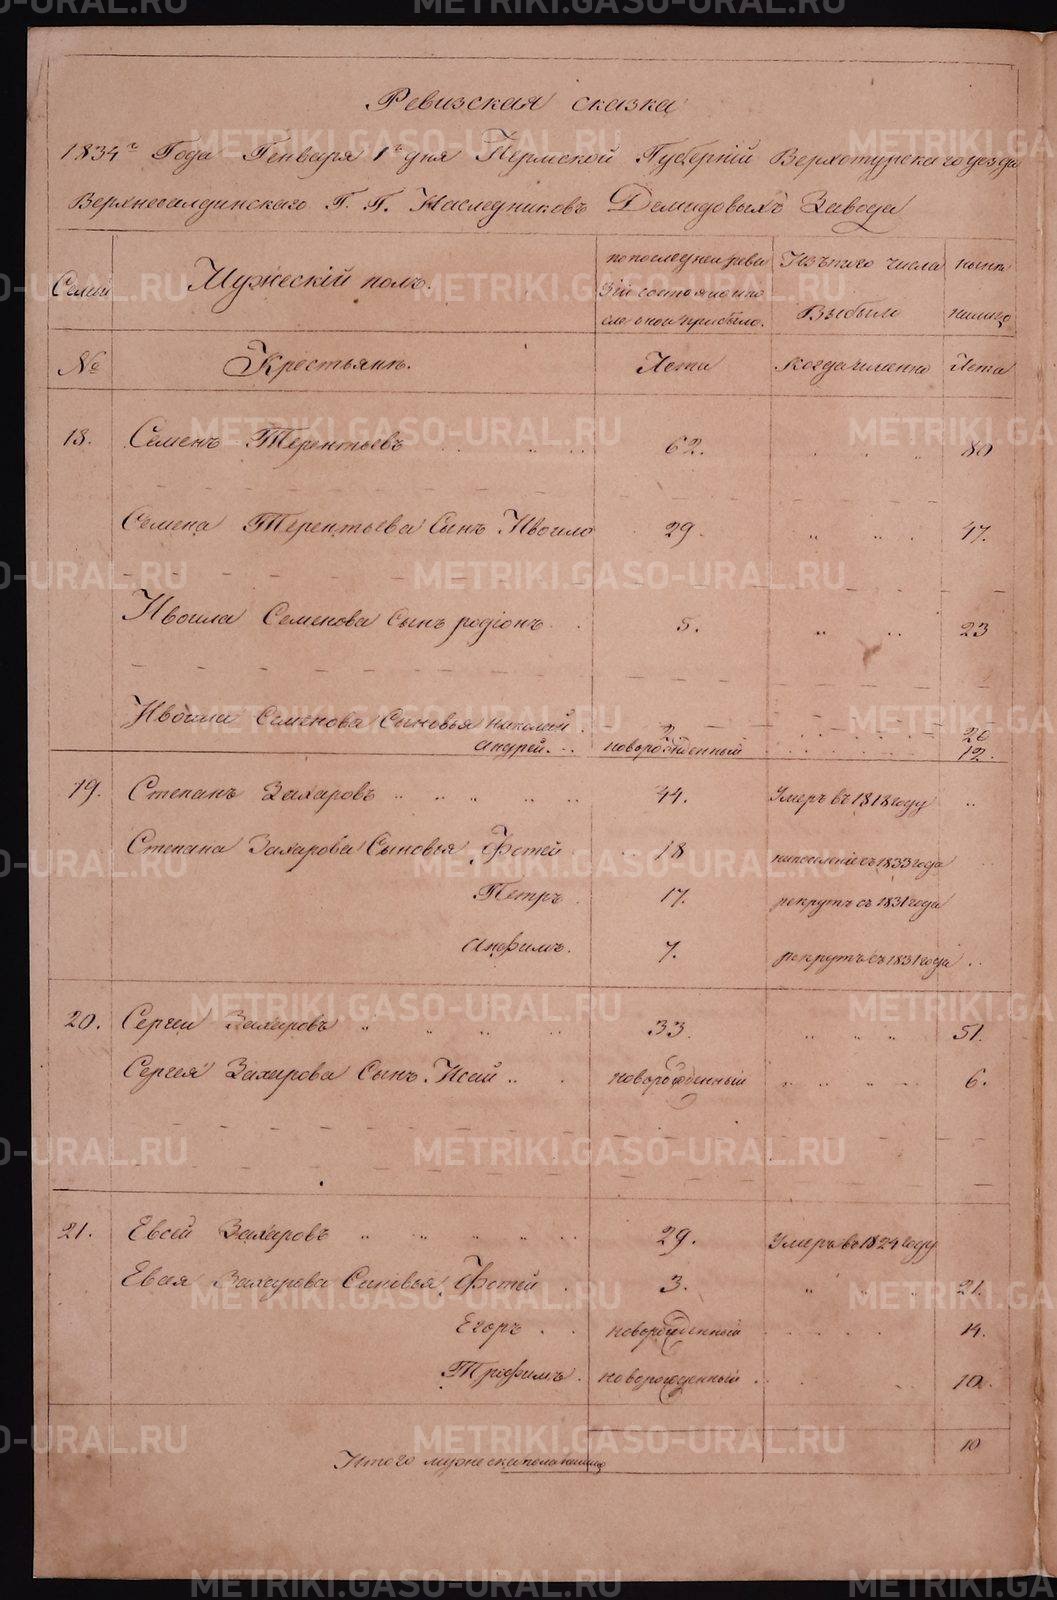 Ревизская сказка
1834го Года Генваря 1го дня Пермской Губерніи Верхотурскаго уезда
Верхнесалдинскаго Г. Г. Наследниковъ Демидовыхъ Завода
Семьи Мужескій полъ. по последней реви Изъ того числа ныне
зіи состояло и по
сле оной прибыло. Выбыло налицо
№ Крестьяне. Лета когда именно Лета
18. Семенъ Терентьевъ 62. 80
Семена Терентьева Сынъ Ивойло 29. 47.
Ивоила Семенова Сынъ родіонъ 5. 23
Ивоила Семенова Сыновья Николай 2. 20
андрей новорожденный 12.
19. Степанъ Захаровъ 44. Умеръ въ 1818 году
Степана Захарова Сыновья, Фотей 18 на поселеніе съ 1833 года
Петръ 17. рекрутъ съ 1831 года
анфимъ. 7. рекрутъ съ 1831 года
20. Сергеи Захаровъ 33. 51.
Сергея Захарова Сынъ. Исай новорожденный 6.
21. Евсей Захаровъ 29. Умеръ въ 1824 году
Евсея Захарова Сыновья, Фотей 3. 21.
Егоръ новорожденный 14.
Трофимъ. новорожденный 10.
10
Итого мужеска пола налицо
METRIKI.GASO-URAL.RU